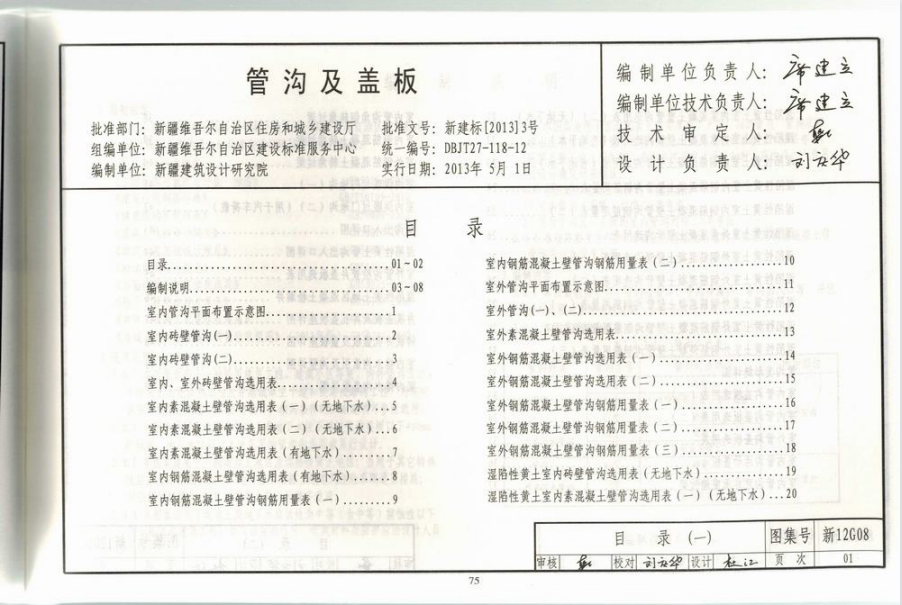 管沟及盖板
批准部门：新疆维吾尔自治区住房和城乡建设厅 批准文号：新建标[2013]3号
组编单位：新疆维吾尔自治区建设标准服务中心 统一编号：DBJT27-118-12
编制单位：新疆建筑设计研究院 实行日期：2013年5月1日
编制单位负责人：席建立
编制单位技术负责人：席建立
技术审定人：
设计负责人：
目 录
目录...01-02
编制说明...03-08
室内管沟平面布置示意图...1
室内砖壁管沟(一)...2
室内砖壁管沟(二)...3
室内、室外砖壁管沟选用表...4
室内素混凝土壁管沟选用表(一)(无地下水)...5
室内素混凝土壁管沟选用表(二)(无地下水)...6
室内素混凝土壁管沟选用表(有地下水)...7
室内钢筋混凝土壁管沟选用表(有地下水)...8
室内钢筋混凝土壁管沟钢筋用量表(一)...9
室内钢筋混凝土壁管沟钢筋用量表(二)...10
室外管沟平面布置示意图...11
室外管沟(一)、(二)...12
室外素混凝土壁管沟选用表...13
室外钢筋混凝土壁管沟选用表(一)...14
室外钢筋混凝土壁管沟选用表(二)...15
室外钢筋混凝土壁管沟钢筋用量表(一)...16
室外钢筋混凝土壁管沟钢筋用量表(二)...17
室外钢筋混凝土壁管沟钢筋用量表(三)...18
湿陷性黄土室内砖壁管沟选用表(无地下水)...19
湿陷性黄土室内素混凝土壁管沟选用表(一)(无地下水)...20
目 录 (一) 图集号 新12G08
审核 校对 设计 杜江 页次 01
75